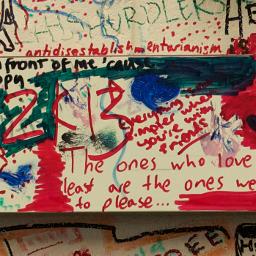 HURDLERS
HE
antidisestablishmentarianism
front of me 'cause
ppy
2K13
Everything is
sweeter when
you're with
friends
The ones who love
least are the ones we
to please...